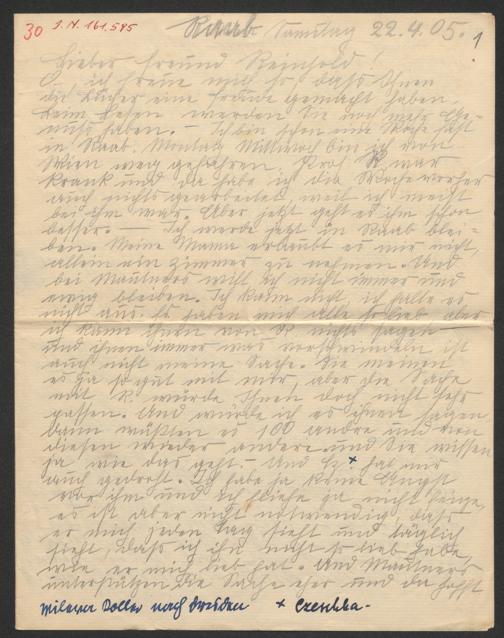 30 J.N. 161.595
Raab Samstag 22.4.05. 1
Lieber Freund Reinhold!
ich freue mich so, dass Ihnen
die Bücher eine Freude gemacht haben.
beim Lesen werden Sie noch mehr Ge-
nuss haben. – Ich bin schon eine Woche fast
in Raab. Montag Mittwoch bin ich von
Wien weg gefahren. Prof R war
krank und da habe ich die Woche vorher
auch nichts gearbeitet, weil ich meist
bei ihm war. Aber jetzt geht es ihm schon
besser. – Ich werde jetzt in Raab blei-
ben. Meine Mama erlaubt es mir nicht,
allein ein Zimmer zu nehmen. Und
bei Mautners will ich nicht immer und
ewig bleiben. Ich kann nicht, ich halte es
nicht aus. Es haben mich alle so lieb aber
ich kann ihnen von R nichts sagen
und ihnen immer was vorschwindeln ist
auch nicht meine Sache. Sie meinen
es ja so gut mit mir, aber die Sache
mit R würde ihnen doch nicht sehr
passen. Und würde ich es ihnen sagen
dann wüßten es 100 andre und von
diesen wieder andere und Sie wissen
ja wie das geht. – Und Cz x hat mir
auch gedroht. Ich habe ja keine Angst
vor ihm und ich fliehe ja nicht feige,
es ist aber nicht notwendig, dass
er mich jeden Tag sieht und täglich
sieht, dass ich ihn nicht so lieb habe,
wie er mich lieb hat. Und Mautners
unterstützen die Sache eher und da hofft
Mileva Roller nach Dresden x Czeschka-